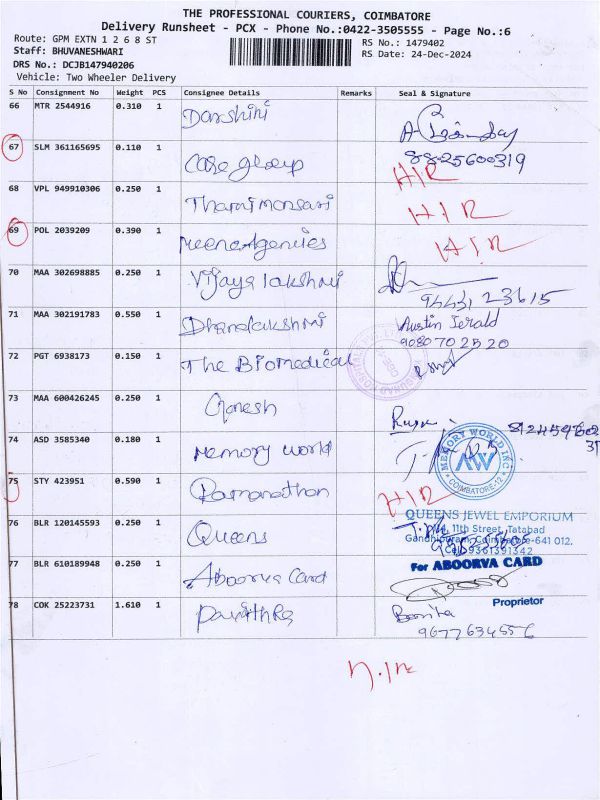 THE PROFESSIONAL COURIERS, COIMBATORE
Delivery Runsheet - PCX - Phone No.:0422-3505555 - Page No.:6
Route: GPM EXTN 1 2 6 8 ST
RS No.: 1479402
Staff: BHUVANESHWARI
RS Date: 24-Dec-2024
DRS No.: DCJB147940206
Vehicle: Two Wheeler Delivery
S No Consignment No Weight PCS Consignee Details Remarks Seal & Signature
66 MTR 2544916 0.310 1 Darshini
67 SLM 361165695 0.110 1 Case group 8825600319
HIR
68 VPL 949910306 0.250 1 Tharnimonsari HIR
69 POL 2039209 0.390 1 Meena Agencies HIR
70 MAA 302698885 0.250 1 Vijaya lakshmi 94431 23615
71 MAA 302191783 0.550 1 Dhanalakshmi Austin Jerald
9080702520
72 PGT 6938173 0.150 1 The Biomedical
73 MAA 600426245 0.250 1 Ganesh
74 ASD 3585340 0.180 1 Memory world
MEMORY WORLD INC
MW
COIMBATORE-12
75 STY 423951 0.590 1 Ramanathan HIR
76 BLR 120145593 0.250 1 Queens
QUEENS JEWEL EMPORIUM
11th Street, Tatabad
Gandhipuram, Coimbatore-641 012.
Cell: 9361391342
77 BLR 610189948 0.250 1 Aboorva Card
For ABOORVA CARD
Proprietor
78 COK 25223731 1.610 1 Pavithra
9677634556